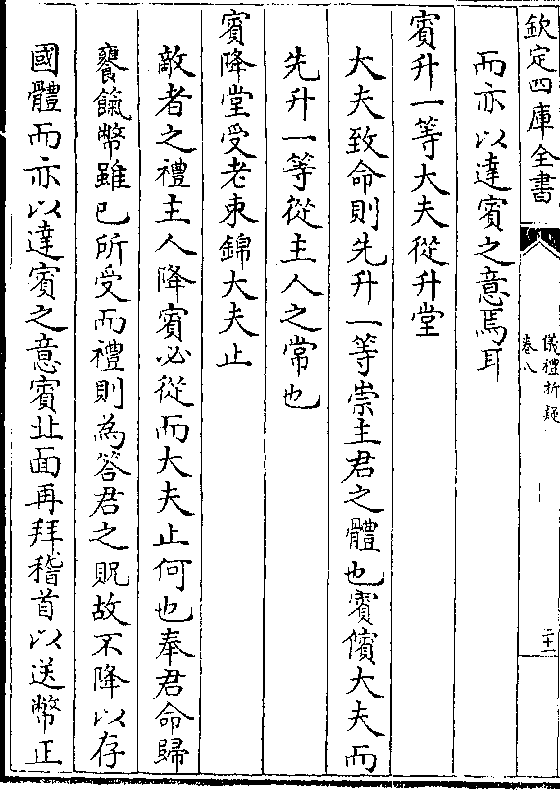 欽定四庫全書
儀禮析疑
卷八
二十一
而亦以達賓之意焉耳
賓升一等大夫從升堂
大夫致命則先升一等崇主君之體也賓儐大夫而
先升一等從主人之常也
賓降堂受老束錦大夫止
敵者之禮主人降賓必從而大夫止何也奉君命歸
饔餼幣雖已所受而禮則為答君之貺故不降以存
國體而亦以達賓之意賓北面再拜稽首以送幣正